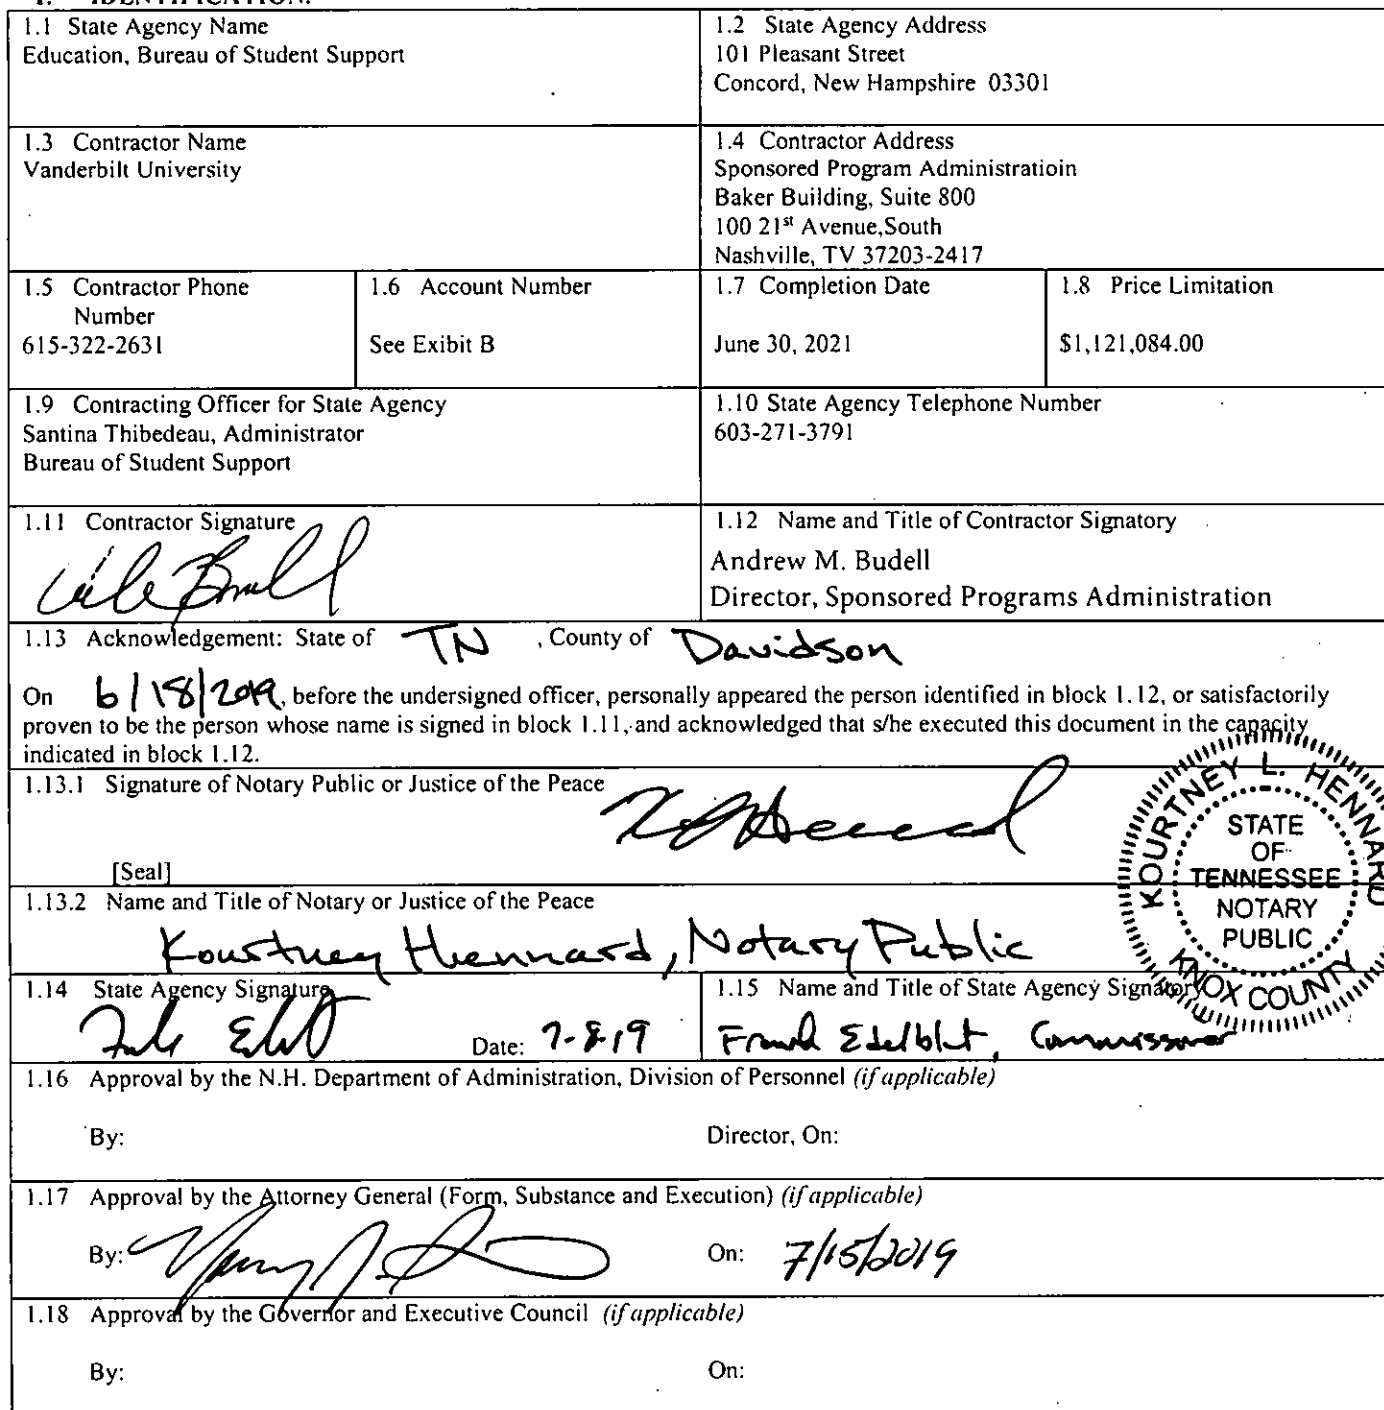 1. IDENTIFICATION.
1.1 State Agency Name
Education, Bureau of Student Support
1.2 State Agency Address
101 Pleasant Street
Concord, New Hampshire 03301
1.3 Contractor Name
Vanderbilt University
1.4 Contractor Address
Sponsored Program Administratioin
Baker Building, Suite 800
100 21st Avenue,South
Nashville, TV 37203-2417
1.5 Contractor Phone
Number
615-322-2631
1.6 Account Number
See Exibit B
1.7 Completion Date
June 30, 2021
1.8 Price Limitation
$1,121,084.00
1.9 Contracting Officer for State Agency
Santina Thibedeau, Administrator
Bureau of Student Support
1.10 State Agency Telephone Number
603-271-3791
1.11 Contractor Signature
1.12 Name and Title of Contractor Signatory
Andrew M. Budell
Director, Sponsored Programs Administration
1.13 Acknowledgement: State of TN , County of Davidson
On 6/18/2019, before the undersigned officer, personally appeared the person identified in block 1.12, or satisfactorily
proven to be the person whose name is signed in block 1.11, and acknowledged that s/he executed this document in the capacity
indicated in block 1.12.
1.13.1 Signature of Notary Public or Justice of the Peace
[Seal]
KOURTNEY L. HENNARD
STATE
OF
TENNESSEE
NOTARY
PUBLIC
KNOX COUNTY
1.13.2 Name and Title of Notary or Justice of the Peace
Kourtney Hennard, Notary Public
1.14 State Agency Signature
Date: 7-8-19
1.15 Name and Title of State Agency Signatory
Frank Edelblut, Commissioner
1.16 Approval by the N.H. Department of Administration, Division of Personnel (if applicable)
By: Director, On:
1.17 Approval by the Attorney General (Form, Substance and Execution) (if applicable)
By: On: 7/15/2019
1.18 Approval by the Governor and Executive Council (if applicable)
By: On: